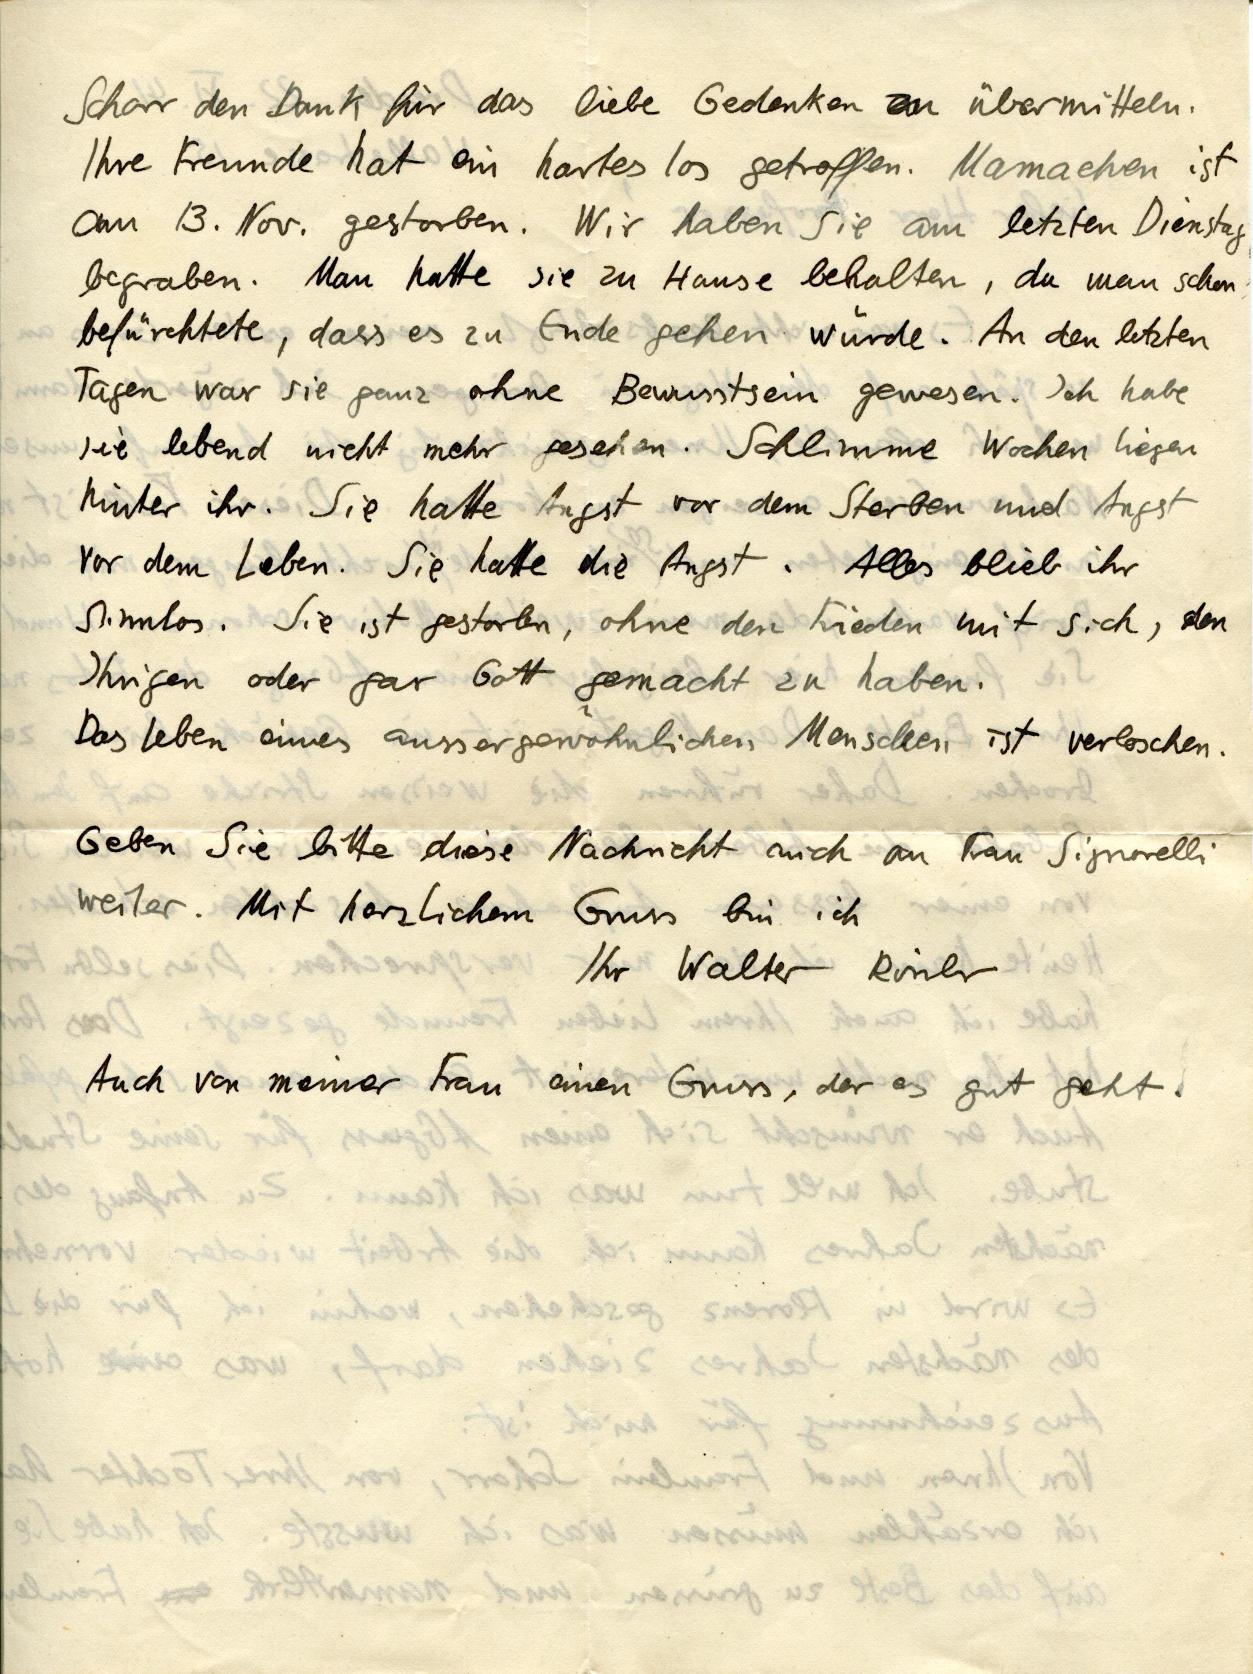 Scharr den Dank für das liebe Gedenken zu übermitteln.
Ihre Freunde hat ein hartes Los getroffen. Mamachen ist
am 13. Nov. gestorben. Wir haben Sie am letzten Dienstag
begraben. Man hatte sie zu Hause behalten, da man schon
befürchtete, dass es zu Ende gehen würde. An den letzten
Tagen war sie ganz ohne Bewusstsein gewesen. Ich habe
sie lebend nicht mehr gesehen. Schlimme Wochen liegen
hinter ihr. Sie hatte Angst vor dem Sterben und Angst
vor dem Leben. Sie hatte die Angst. Alles blieb ihr
sinnlos. Sie ist gestorben, ohne den Frieden mit sich, den
Ihrigen oder gar Gott gemacht zu haben.
Das Leben eines aussergewöhnlichen Menschen ist verloschen.
Geben Sie bitte diese Nachricht auch an Frau Signorelli
weiter. Mit herzlichem Gruss bin ich
Ihr Walter
Auch von meiner Frau einen Gruss, der es gut geht.